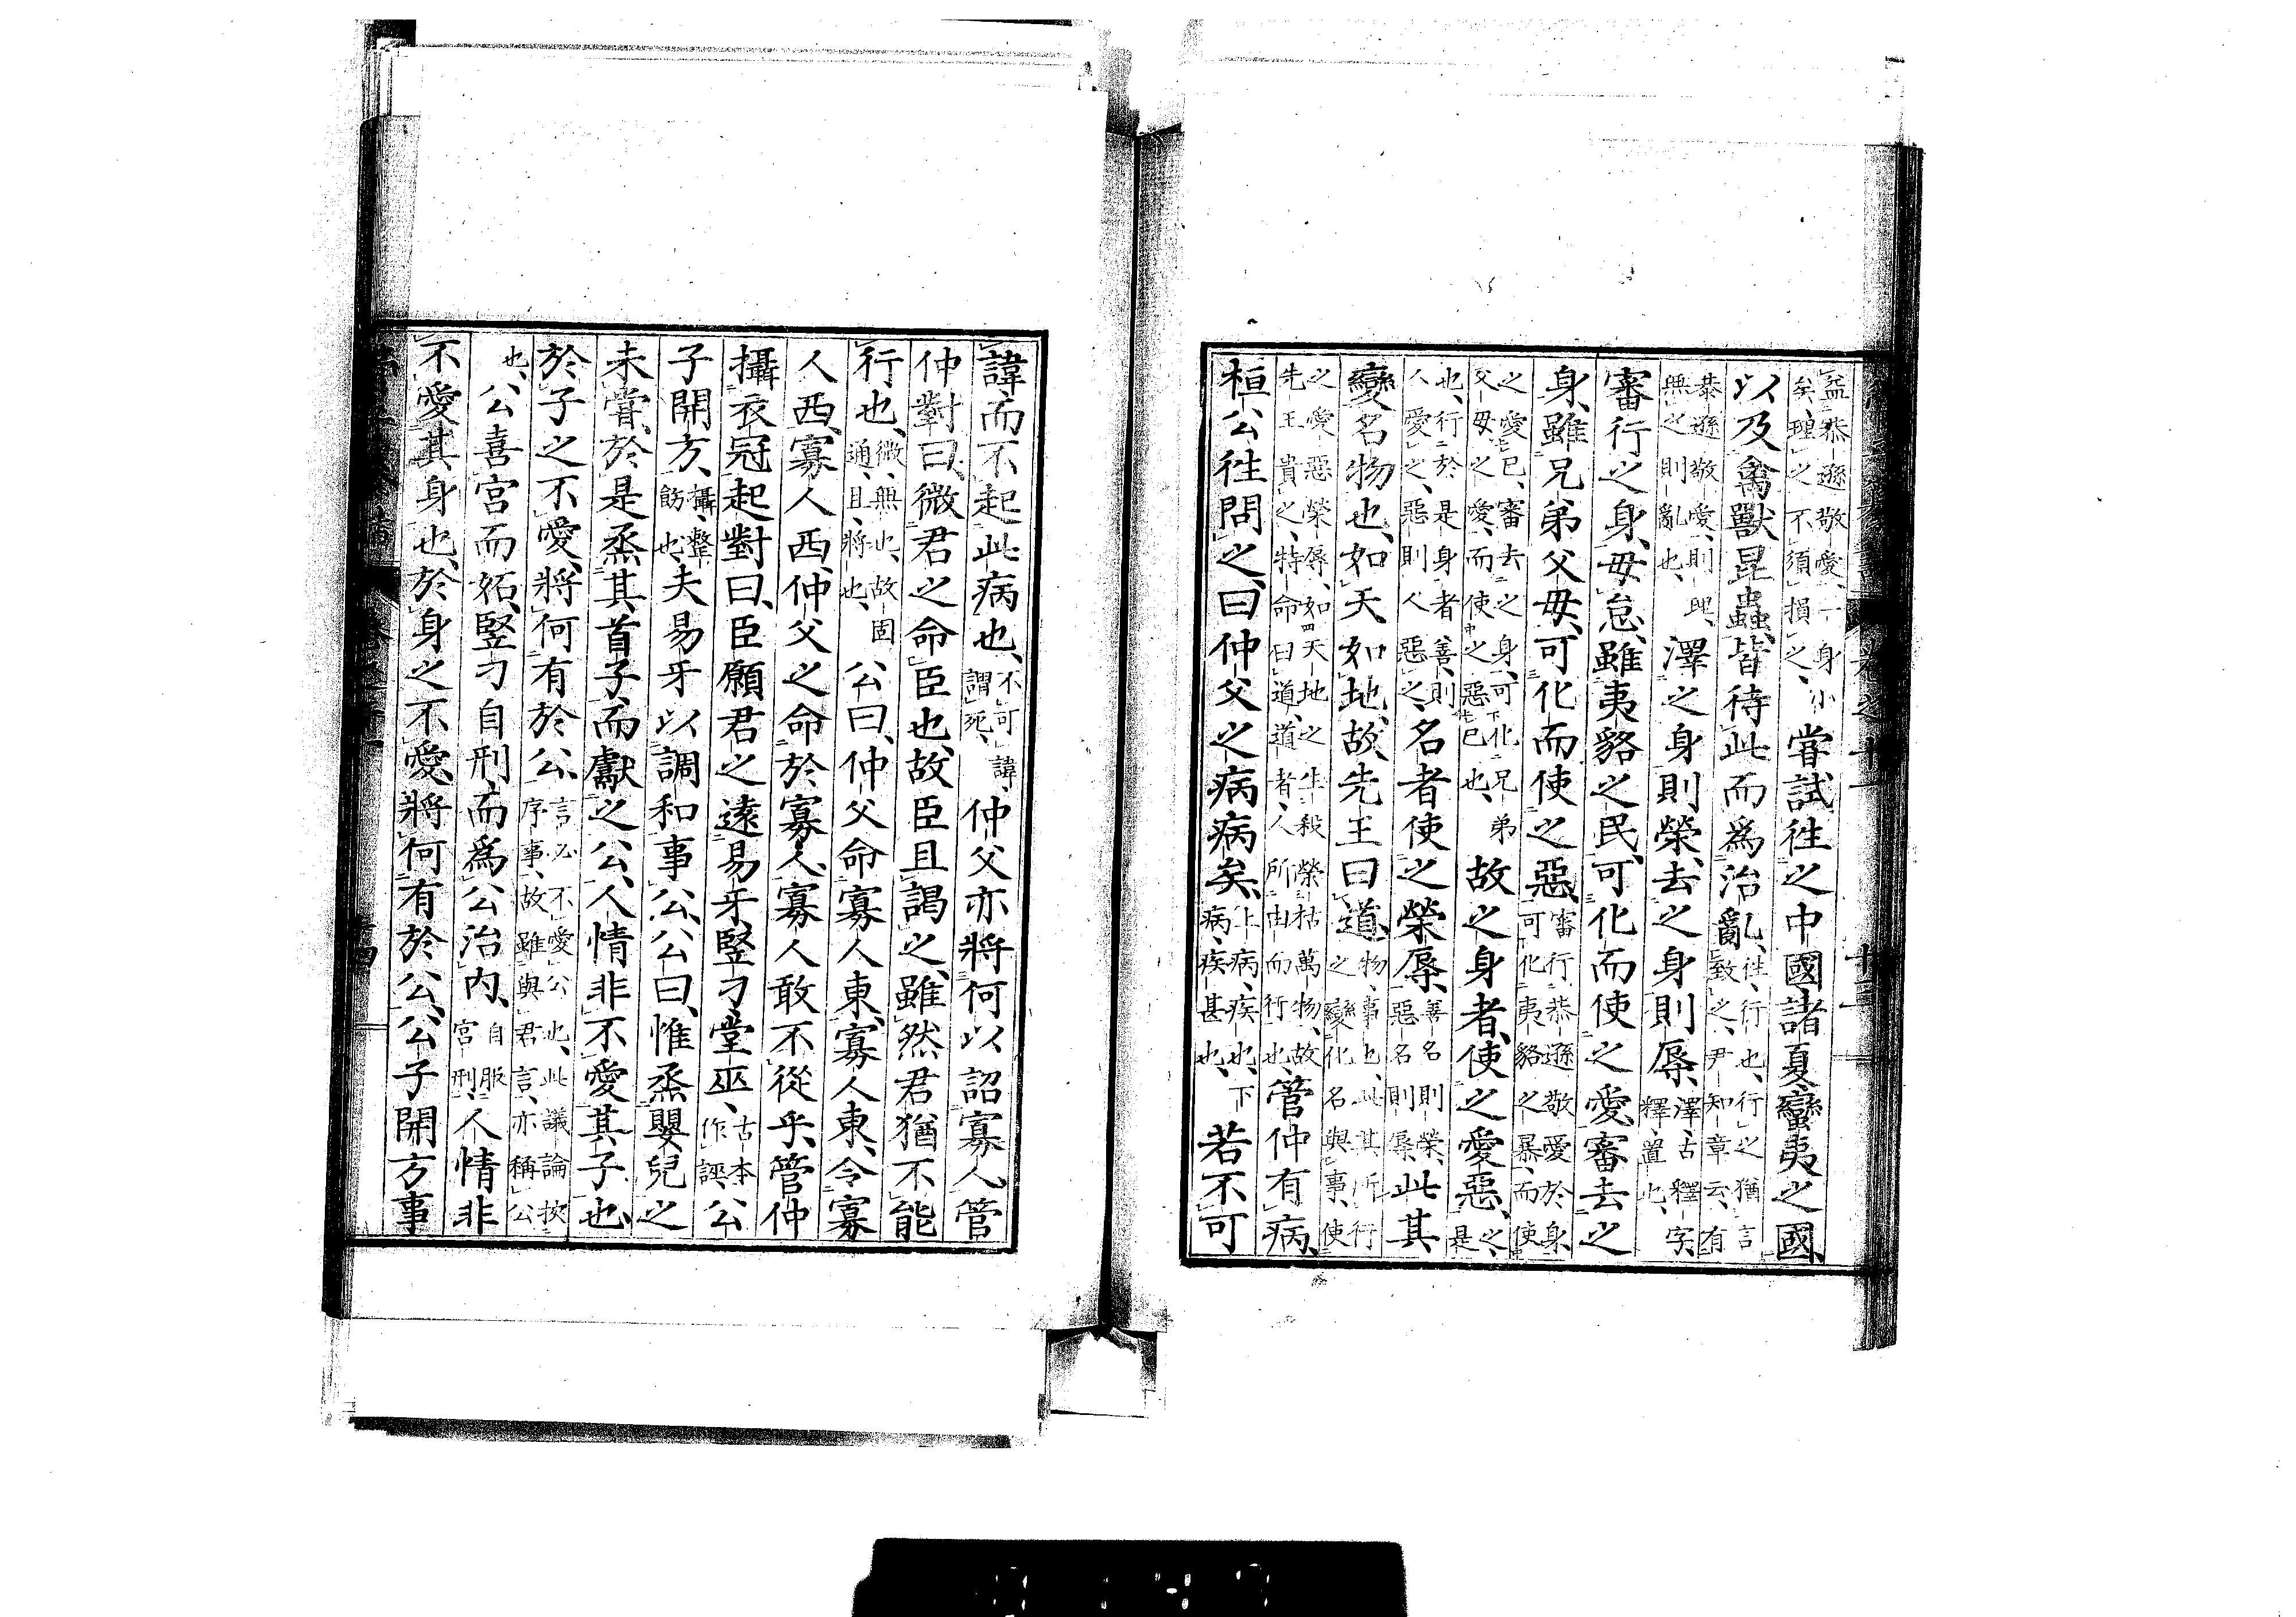 益恭遜敬愛、一身小
矣、理之不須損之、嘗試往之中國諸夏蠻夷之國、
以及禽獸昆蟲、皆待此而爲治亂、往、行也、行之猶言
致之、尹知章云、有
恭遜敬愛、則興、
無之則亂也、澤之身則榮、去之身則辱、澤、古釋字、
釋、置也、
審行之身毋怠、雖夷貉之民、可化而使之愛、審去之
身、雖兄弟父母、可化而使之惡、審行恭遜敬愛於身、
可化夷貉之暴、而使
之愛已、審去之身、可化兄弟
父母之愛、而使之惡已也、故之身者、使之愛惡、之、
是
也、行於是身者善、則
人愛之、惡則人惡之、名者使之榮辱、善名則榮、
惡名則辱、此其
變名物也、如天如地、故先王曰道、物、事也、此其所行
之變化名與事、使
之愛惡榮辱、如天地之生殺榮枯萬物、故
先王貴之、特命曰道、道者、人所由而行也、管仲有病、
桓公往問之、曰仲父之病病矣、上病、疾也、下
病、疾甚也、若不可
諱、而不起此病也、不可諱、
謂死、仲父亦將何以詔寡人、管
仲對曰、微君之命臣也、故臣且謁之、雖然君猶不能
行也、微、無也、故固
通、且、將也、公曰、仲父命寡人東、寡人東、令寡
人西、寡人西、仲父之命於寡人、寡人敢不從乎、管仲
攝衣冠起對曰、臣願君之遠易牙、豎刁、堂巫、古本
作誣、公
子開方、攝、整
飭也、夫易牙以調和事公、公曰、惟烝嬰兒之
未嘗、於是烝其首子、而獻之公、人情非不愛其子也、
於子之不愛、將何有於公、言必不愛公也、此議論按
序事、故雖與君言、亦稱公
也、公喜宮而妬、豎刁自刑、而爲公治內、自服
宮刑、人情非
不愛其身也、於身之不愛、將何有於公、公子開方事